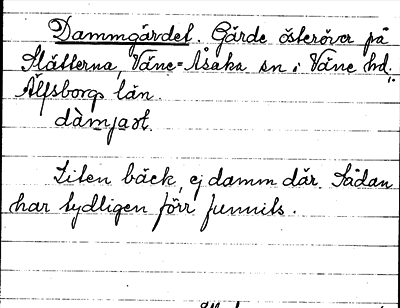 Dammgärdet. Gärde österöver på
Slätterna, Väne-Åsaka sn i Väne hd.
Älfsborgs län.
dàmjaṣt.
Liten bäck, ej damm där. Sådan
har tydligen förr funnits.